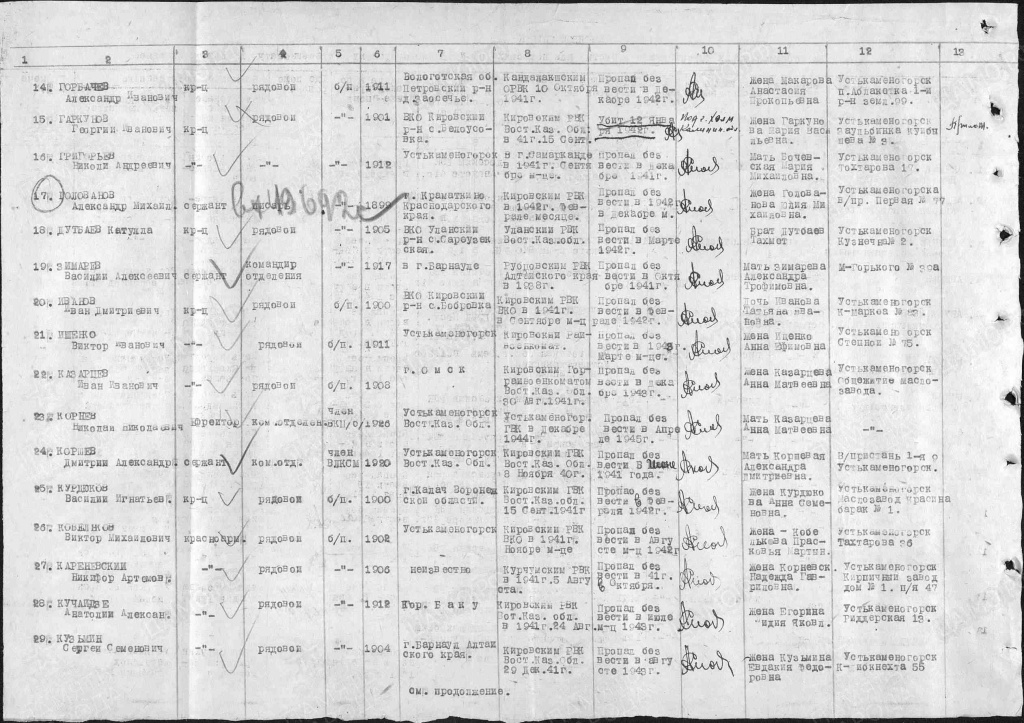 1 2 3 4 5 6 7 8 9 10 11 12 13
14. ГОРБАЧЕВ Александр Иванович кр-ц рядовой б/п 1911 Вологотская об. Петровский р-н д.Заосечье. Кандалакшским ОРВК 10 Октября 1941г. Пропал без вести в Декабре 1942г. Жена Макарова Анастасия Прокопьевна Устькаменогорск п.Аблакетка 1-й р-н земл.99.
15. ГАРКУНОВ Георгий Иванович кр-ц рядовой -"- 1901 ВКО Кировский р-н с.Белоусовка. Кировским РВК Вост.Каз. Обл. в 41г.15 Сент. Убит 12 Января 1942г. Жена Гаркунова Мария Васильевна. Устькаменогорск Заульбинка Куйбышева № 3.
16. ГРИГОРЬЕВ Николй Андреевич -"- -"- -"- 1912 Устькаменогорск в г.Самарканде в 1941г. Сентябре м-це. Пропал без вести в декабре 1942г. Мать Бочевская Мария Михайловна. Устькаменогорск Тохтарова 17.
17. ГОЛОВАНОВ Александр Михаил. сержант -"- 1899 г. Краматкино Краснодарского края. Кировским РВК в 1942г. феврале месяце. Пропал без вести в 1942г в декабре м. Жена Голованова Юлия Михайловна. Устькаменогорск В/пр. Первая № 77
18. ДУТБАЕВ Катулла кр-ц рядовой -"- 1905 ВКО Уланский р-н с.Сароузекская. Уланским РВК Вост.Каз.обл. Пропал без вести в Марте 1942г. Брат Дутбаев Тахмет Устькаменогорск Кузнечная 2.
19. ЗИМАРЕВ Василий Алексеевич сержант командир отделения -"- 1917 в г.Барнауле Рубровским РВК Алтайского края в 1938г. Пропал без вести в Октябре 1941г. Мать Зимарева Александра Трофимовна. М-Горького № 39а
20. ИВАНОВ Иван Дмитриевич кр-ц рядовой б/п. 1900 ВКО Кировский р-н с.Бобровка Кировским РВК ВКО в 1941г. в Сентябре м-ц Пропал без вести в Феврале 1942г. Дочь Иванова Татьяна Ивановна. Устькаменогорск К-Маркса № 87.
21. ИЩЕНКО Виктор Иванович -"- рядовой б/п 1911 Устькаменогорск Кировский Рай военкомат. Пропал без вести в 1943г Марте м-це. Жена Ищенко Анна Ефимовна Устькаменогорск Степной № 75.
22. КАЗАРЦЕВ Иван Иванович -"- рядовой б/п. 1908 г. Омск Кировским Горрайвоенкоматом Вост.Каз.Обл. 30 Авг.1941г. Пропал без вести в декабре 1943г. Жена Казарцева Анна Матвеевна Устькаменогорск Общежитие маслозавода.
23. КОРНЕВ Николай Николаевич Ефрейтор ком.отделен. член ВКП/б/ 1926 Устькаменогорск Вост.Каз. Обл. Устькаменогор. ГВК в Декабре 1944г. Пропал без вести в Апреле 1945г. Мать Казарцева Анна Матвеевна -"-
24. КОРШЕВ Дмитрий Александр. сержант ком.отд. член ВЛКСМ 1920 Устькаменогорск Вост.Каз. Обл. Кировским ГВК Вост.Каз. Обл. 8 Ноября 40г. Пропал без Вести В Июне 1941 года. Мать Корнева Александра Дмитриевна. В/пристань 1-я 9 Устькаменогорск
25. КУРДЮКОВ Василий Игнатьев. кр-ц рядовой б/п. 1908 г.Калач Воронежской области. Кировским ГВК Вост.Каз.обл. 15 Сент.1941г Пропал без вести в Феврале 1942г. Жена Курдюкова Анна Семеновна. Устькаменогорск Маслозавод Красина барак № 1.
26. КОБЕЛЯКОВ Виктор Михайлович красноарм. рядовой б/п. 1902 Устькаменогорск Кировским РВК ВКО в 1941г. Ноябре м-це Пропал без вести в Августе м-ц 1942г Жена - Кобелькова Прасковья Мартин. Устькаменогорск Тахтарова 26
27. КАРЕНЕВСКИЙ Никифор Артемов. -"- рядовой -"- 1906 неизвестно Курчумским РВК в 1941г.5 Августа. Пропал без вести в 41г. в Октября. Жена Корневск. Надежда Гавриловна. Устькаменогорск Кирпичный завод дом № 1. п/я 47
28. КУЧАЙДЗЕ Анатолий Алексан. -"- рядовой -"- 1912 Гор. Баку Кировским РВК Вот.Каз. обл. в 1941г.24 Авг. Пропал без вести в июле м-ц 1943г. Жена Егорина Лидия Яковл. Устькаменогорск Риддерская 13.
29. КУЗЬМИН Сергей Семенович -"- рядовой -"- 1904 г.Барнаул Алтайского края. Кировским РВК Вост.Каз.Обл. 29 Дек.41г. Пропал без вести в августе 1943г. Жена Кузьмина Евдакия Федоровна Устькаменогорск К-Либкнехта 55
см. продолжение.